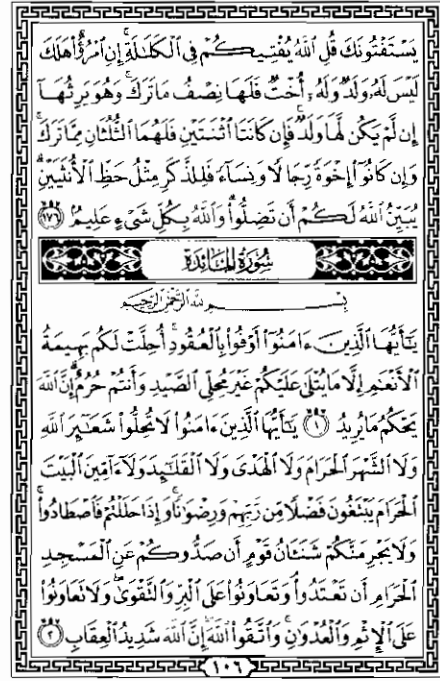 يَسْتَفْتُونَكَ قُلِ ٱللَّهُ يُفْتِيكُمْ فِى ٱلْكَلَٰلَةِ ۚ إِنِ ٱمْرُؤٌا۟ هَلَكَ
لَيْسَ لَهُۥ وَلَدٌ وَلَهُۥٓ أُخْتٌ فَلَهَا نِصْفُ مَا تَرَكَ ۚ وَهُوَ يَرِثُهَآ
إِن لَّمْ يَكُن لَّهَا وَلَدٌ ۚ فَإِن كَانَتَا ٱثْنَتَيْنِ فَلَهُمَا ٱلثُّلُثَانِ مِمَّا تَرَكَ ۚ
وَإِن كَانُوٓا۟ إِخْوَةً رِّجَالًا وَنِسَآءً فَلِلذَّكَرِ مِثْلُ حَظِّ ٱلْأُنثَيَيْنِ ۗ
يُبَيِّنُ ٱللَّهُ لَكُمْ أَن تَضِلُّوا۟ ۗ وَٱللَّهُ بِكُلِّ شَىْءٍ عَلِيمٌۢ ١٧٦
سُورَةُ المَائِدَةِ
بِسْمِ ٱللَّهِ ٱلرَّحْمَٰنِ ٱلرَّحِيمِ
يَٰٓأَيُّهَا ٱلَّذِينَ ءَامَنُوٓا۟ أَوْفُوا۟ بِٱلْعُقُودِ ۚ أُحِلَّتْ لَكُم بَهِيمَةُ
ٱلْأَنْعَٰمِ إِلَّا مَا يُتْلَىٰ عَلَيْكُمْ غَيْرَ مُحِلِّى ٱلصَّيْدِ وَأَنتُمْ حُرُمٌ ۗ إِنَّ ٱللَّهَ
يَحْكُمُ مَا يُرِيدُ ١ يَٰٓأَيُّهَا ٱلَّذِينَ ءَامَنُوا۟ لَا تُحِلُّوا۟ شَعَٰٓئِرَ ٱللَّهِ
وَلَا ٱلشَّهْرَ ٱلْحَرَامَ وَلَا ٱلْهَدْىَ وَلَا ٱلْقَلَٰٓئِدَ وَلَآ ءَآمِّينَ ٱلْبَيْتَ
ٱلْحَرَامَ يَبْتَغُونَ فَضْلًا مِّن رَّبِّهِمْ وَرِضْوَٰنًا ۚ وَإِذَا حَلَلْتُمْ فَٱصْطَادُوا۟ ۚ
وَلَا يَجْرِمَنَّكُمْ شَنَـَٔانُ قَوْمٍ أَن صَدُّوكُمْ عَنِ ٱلْمَسْجِدِ
ٱلْحَرَامِ أَن تَعْتَدُوا۟ ۘ وَتَعَاوَنُوا۟ عَلَى ٱلْبِرِّ وَٱلتَّقْوَىٰ ۖ وَلَا تَعَاوَنُوا۟
عَلَى ٱلْإِثْمِ وَٱلْعُدْوَٰنِ ۚ وَٱتَّقُوا۟ ٱللَّهَ ۖ إِنَّ ٱللَّهَ شَدِيدُ ٱلْعِقَابِ ٢
١٠٦